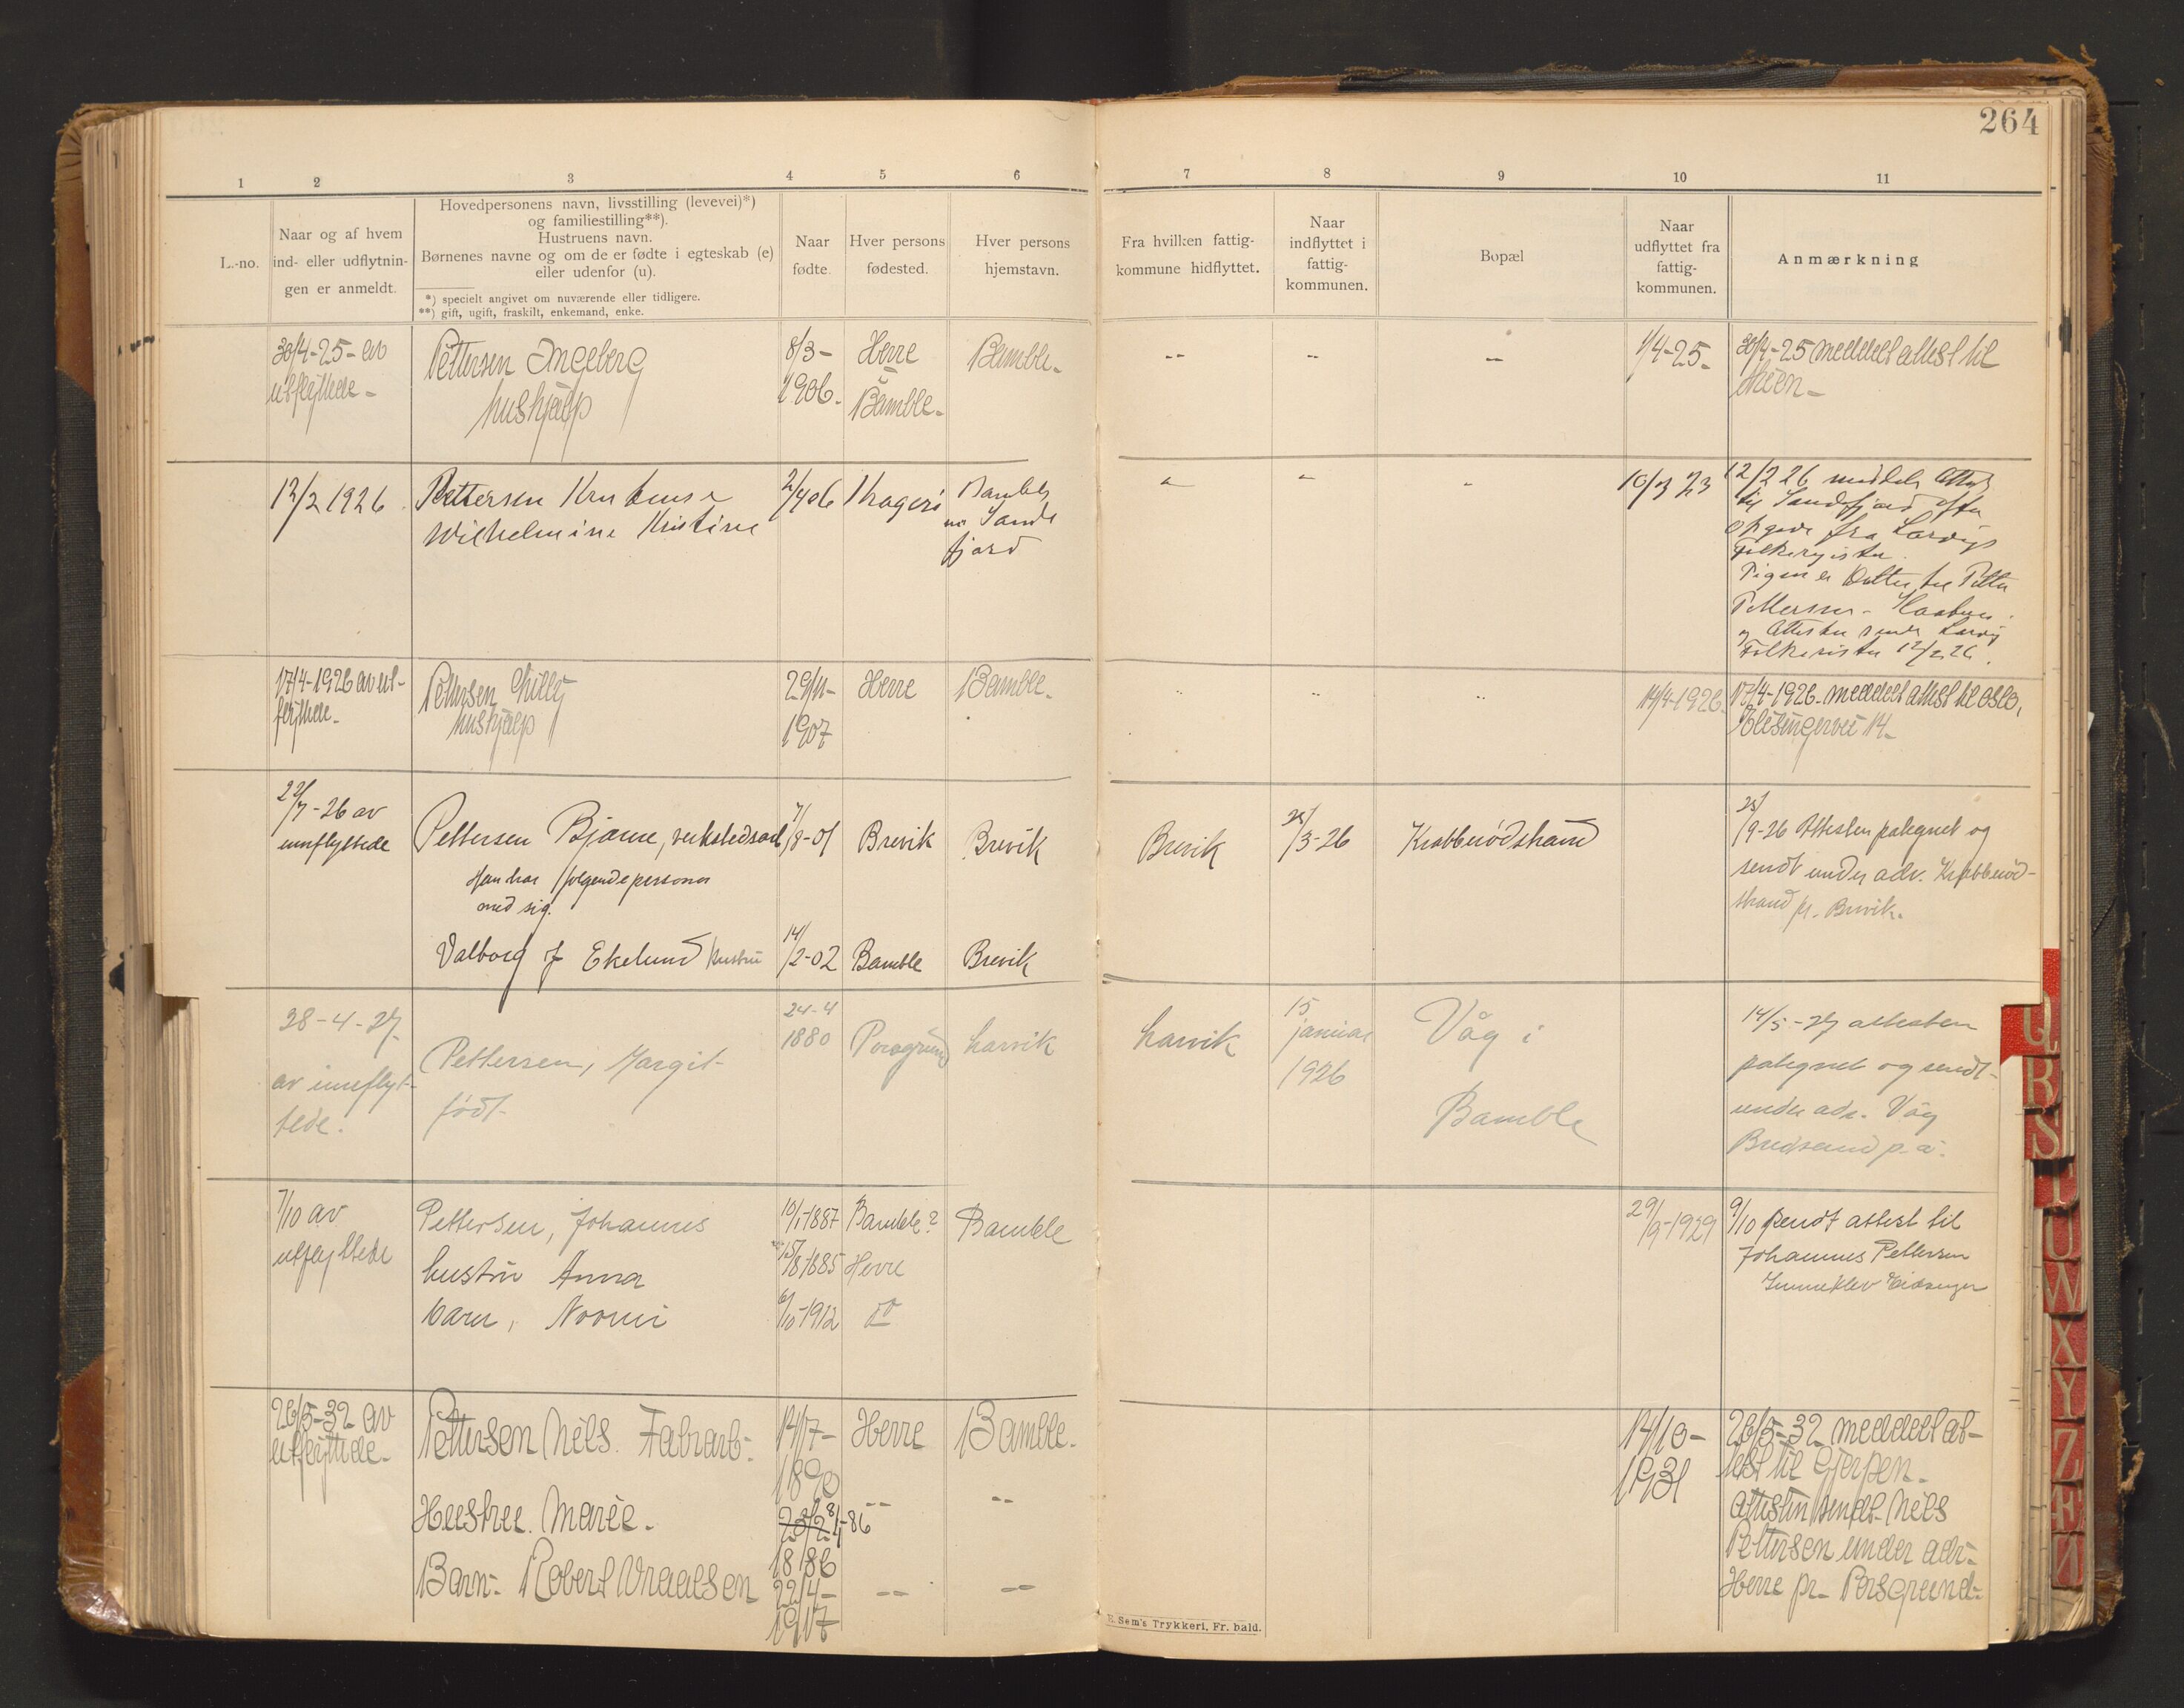 264
1 2 3 4 5 6 7 8 9 10 11
L.-no.
Naar og af hvem
ind- eller udflytnin-
gen er anmeldt.
Hovedpersonens navn, livsstilling (levevei)*)
og familiestilling**).
Hustruens navn.
Børnenes navne og om de er fødte i egteskab (e)
eller udenfor (u).
*) specielt angivet om nuværende eller tidligere.
**) gift, ugift, fraskilt, enkemand, enke.
Naar
fødte.
Hver persons
fødested.
Hver persons
hjemstavn.
Fra hvilken fattig-
kommune hidflyttet.
Naar
indflyttet i
fattig-
kommunen.
Bopæl
Naar
udflyttet fra
fattig-
kommunen.
Anmærkning
30/4-25- av
utflyttede-
Pettersen Ingeberg
hushjælp
8/3-
1906.
Herre
Bamble-
Bamble-
"
"
"
1/4-25-
30/4-25 meddelt attest til
Skien-
12/2 1926
Pettersen
Wilhelmine Kristine
2/4 06
Kragerø
Bamble
nu Sande
fjord
10/3 23
12/2 26 meddelt Attest
til Sandefjord efter
opgave fra Larviks
Folkeregister.
Pigen er Datter til Petter
Pettersen
Attesten sendt Larvik
12/2 26.
17/4-1926 av ut-
flyttede-
Pettersen Milly
hushjælp
29/11-
1907
Herre
Bamble-
"
"
"
14/4-1926
17/4-1926- meddelt attest til Oslo,
14-
22/7-26 av
innflyttede
Pettersen Bjarne, verkstedsarb
Han har følgende personer
med sig.
7/8-01
Brevik
Brevik
Brevik
25/3-26
Krabberødstrand
25/9-26 Attesten pategnet og
sendt under adr. Krabberød-
strand pr. Brevik.
Valborg f Ekelund hustru
14/2-02
Bamble
Brevik
28-4-27
av innflyt-
tede.
Pettersen, Margit
født
24-4
1880
Porsgrund
Larvik
Larvik
15
januar
1926
Våg i
Bamble
14/5-27 attesten
pategnet og sendt
under adr. Våg
Bredsand p.å.
7/10 av
utflyttede
Pettersen, Johannes
hustru Anna
barn, Noomi
10/1-1887
15/8 1885
6/10-1912
Bamble?
Herre
do
Bamble
29/9-1929
9/10 sendt attest til
Johannes Pettersen
Eidanger
26/5-32 av
utflyttede-
Pettersen Nils. Fabrarb-
14/7-
1890
Herre
Bamble-
14/10-
1931
26/5-32 meddelt at-
test til Gjerpen-
Attesten sendt Nils
Pettersen under adr-
Herre pr- Porsgrund-
Hustru. Marie-
23/2
8/4-86
1886
"
"
Barn- Robert Wraalsen
22/4-
1917
"
"
E. Sem's Trykkeri, Fr.hald.
Q
R
S
T
U
W
X
Y
Z
Æ